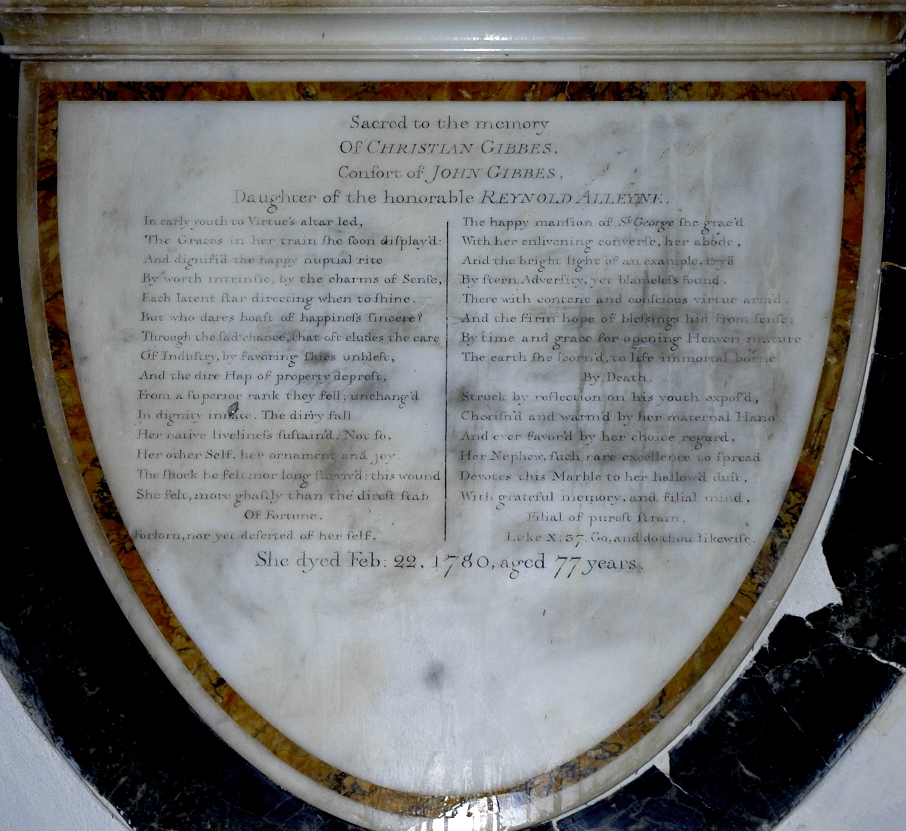 Sacred to the memory
Of CHRISTIAN GIBBES,
Conſort of JOHN GIBBES,
Daughter of the honorable REYNOLD ALLEYNE.
In early youth to Virtue's altar led,
The Graces in her train ſhe ſoon diſplay'd:
And dignifi'd the happy nuptial rite
By worth intrinſic, by the charms of Senſe,
Each latent ſtar directing when to ſhine.
But who dares boaſt of happineſs ſincere?
Through the ſad chance, that oft eludes the care
Of Induſtry, by favoring ſkies unbleſt,
And the dire Hap of property depreſt,
From a ſuperior rank they fell; unchang'd
In dignity innate. The dizzy fall
Her native livelineſs ſuſtain'd. Not ſo,
Her other Self, her ornament and joy.
The ſhock he felt; nor long ſurviv'd: this wound
She felt, more ghaſtly than the direſt ſtab
Of Fortune.
Forlorn, nor yet deſerted of her ſelf,
The happy manſion of St. George ſhe grac'd
With her enlivening converſe, her abode,
And the bright light of an example, try'd
By ſtern Adverſity, yet blameleſs found.
There with content and conſcious virtue arm'd,
And the firm hope of bleſſings hid from ſenſe;
By time and grace for opening Heaven mature
The earth ſhe ſcorn'd, to life immortal borne
By Death.
Struck by reflection on his youth expoſ'd,
Cheriſh'd and warm'd by her maternal Hand
And ever favor'd by her choice regard,
Her Nephew, ſuch rare excellence to ſpread
Devotes this Marble to her hallow'd duſt,
With grateful memory, and filial mind,
Filial of pureſt ſtrain.
Luke X: 37. Go, and do thou likewiſe.
She dyed Feb: 22, 1780, aged 77 years.